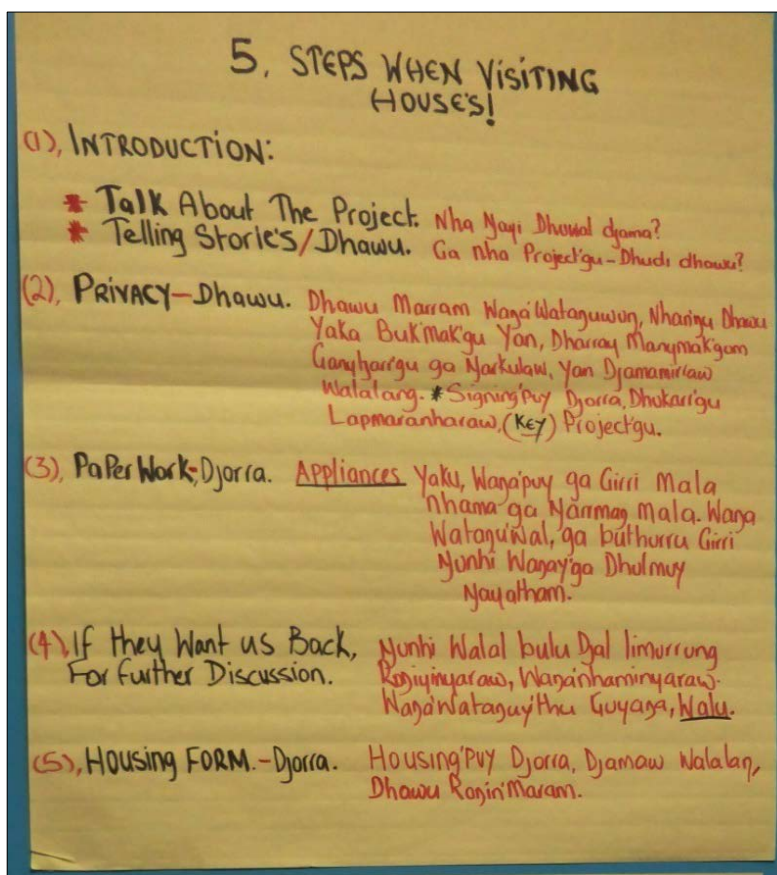 5, STEPS WHEN VISITING
HOUSE'S!
(1), INTRODUCTION:
* Talk About The Project. Nha Ŋayi Dhuwal djama?
* Telling Storie's/Dhawu. Ga nha Project'gu-Dhudi dhawu?
(2), PRIVACY-Dhawu. Dhawu Marram Waŋa'Wataŋuwuŋ, Nhaŋiŋu Dhawu
Yaka Bukmak'gu Yan, Dharray Manymak'gum
Ganyharr'gu ga Ŋarkulaw, Yan Djamamirriw
Walalaŋ. * Signing'puy Djorra, Dhukarr'gu
Lapmaranharaw, (KEY) Project'gu.
(3), PaPer Work-Djorra. Appliances Yaku, Waŋa'puy ga Girri Mala
nhama ga Ŋarrmaŋ mala. Waŋa
Wataŋu'wal, ga buthurru Girri
Ŋunhi Waŋay'ga Dhulmuy
Ŋayatham.
(4), If they Want us Back, Ŋunhi Walal bulu Djal limurruŋ
For further Discussion. Roŋiyinyaraw, Waŋanhaminyaraw.
Waŋa'Wataŋuy'thu Guyaŋa, Walu.
(5), HOUSING FORM.-Djorra. HOUSING'PUY Djorra, Djamaw Walalaŋ,
Dhawu Roŋin'Maram.